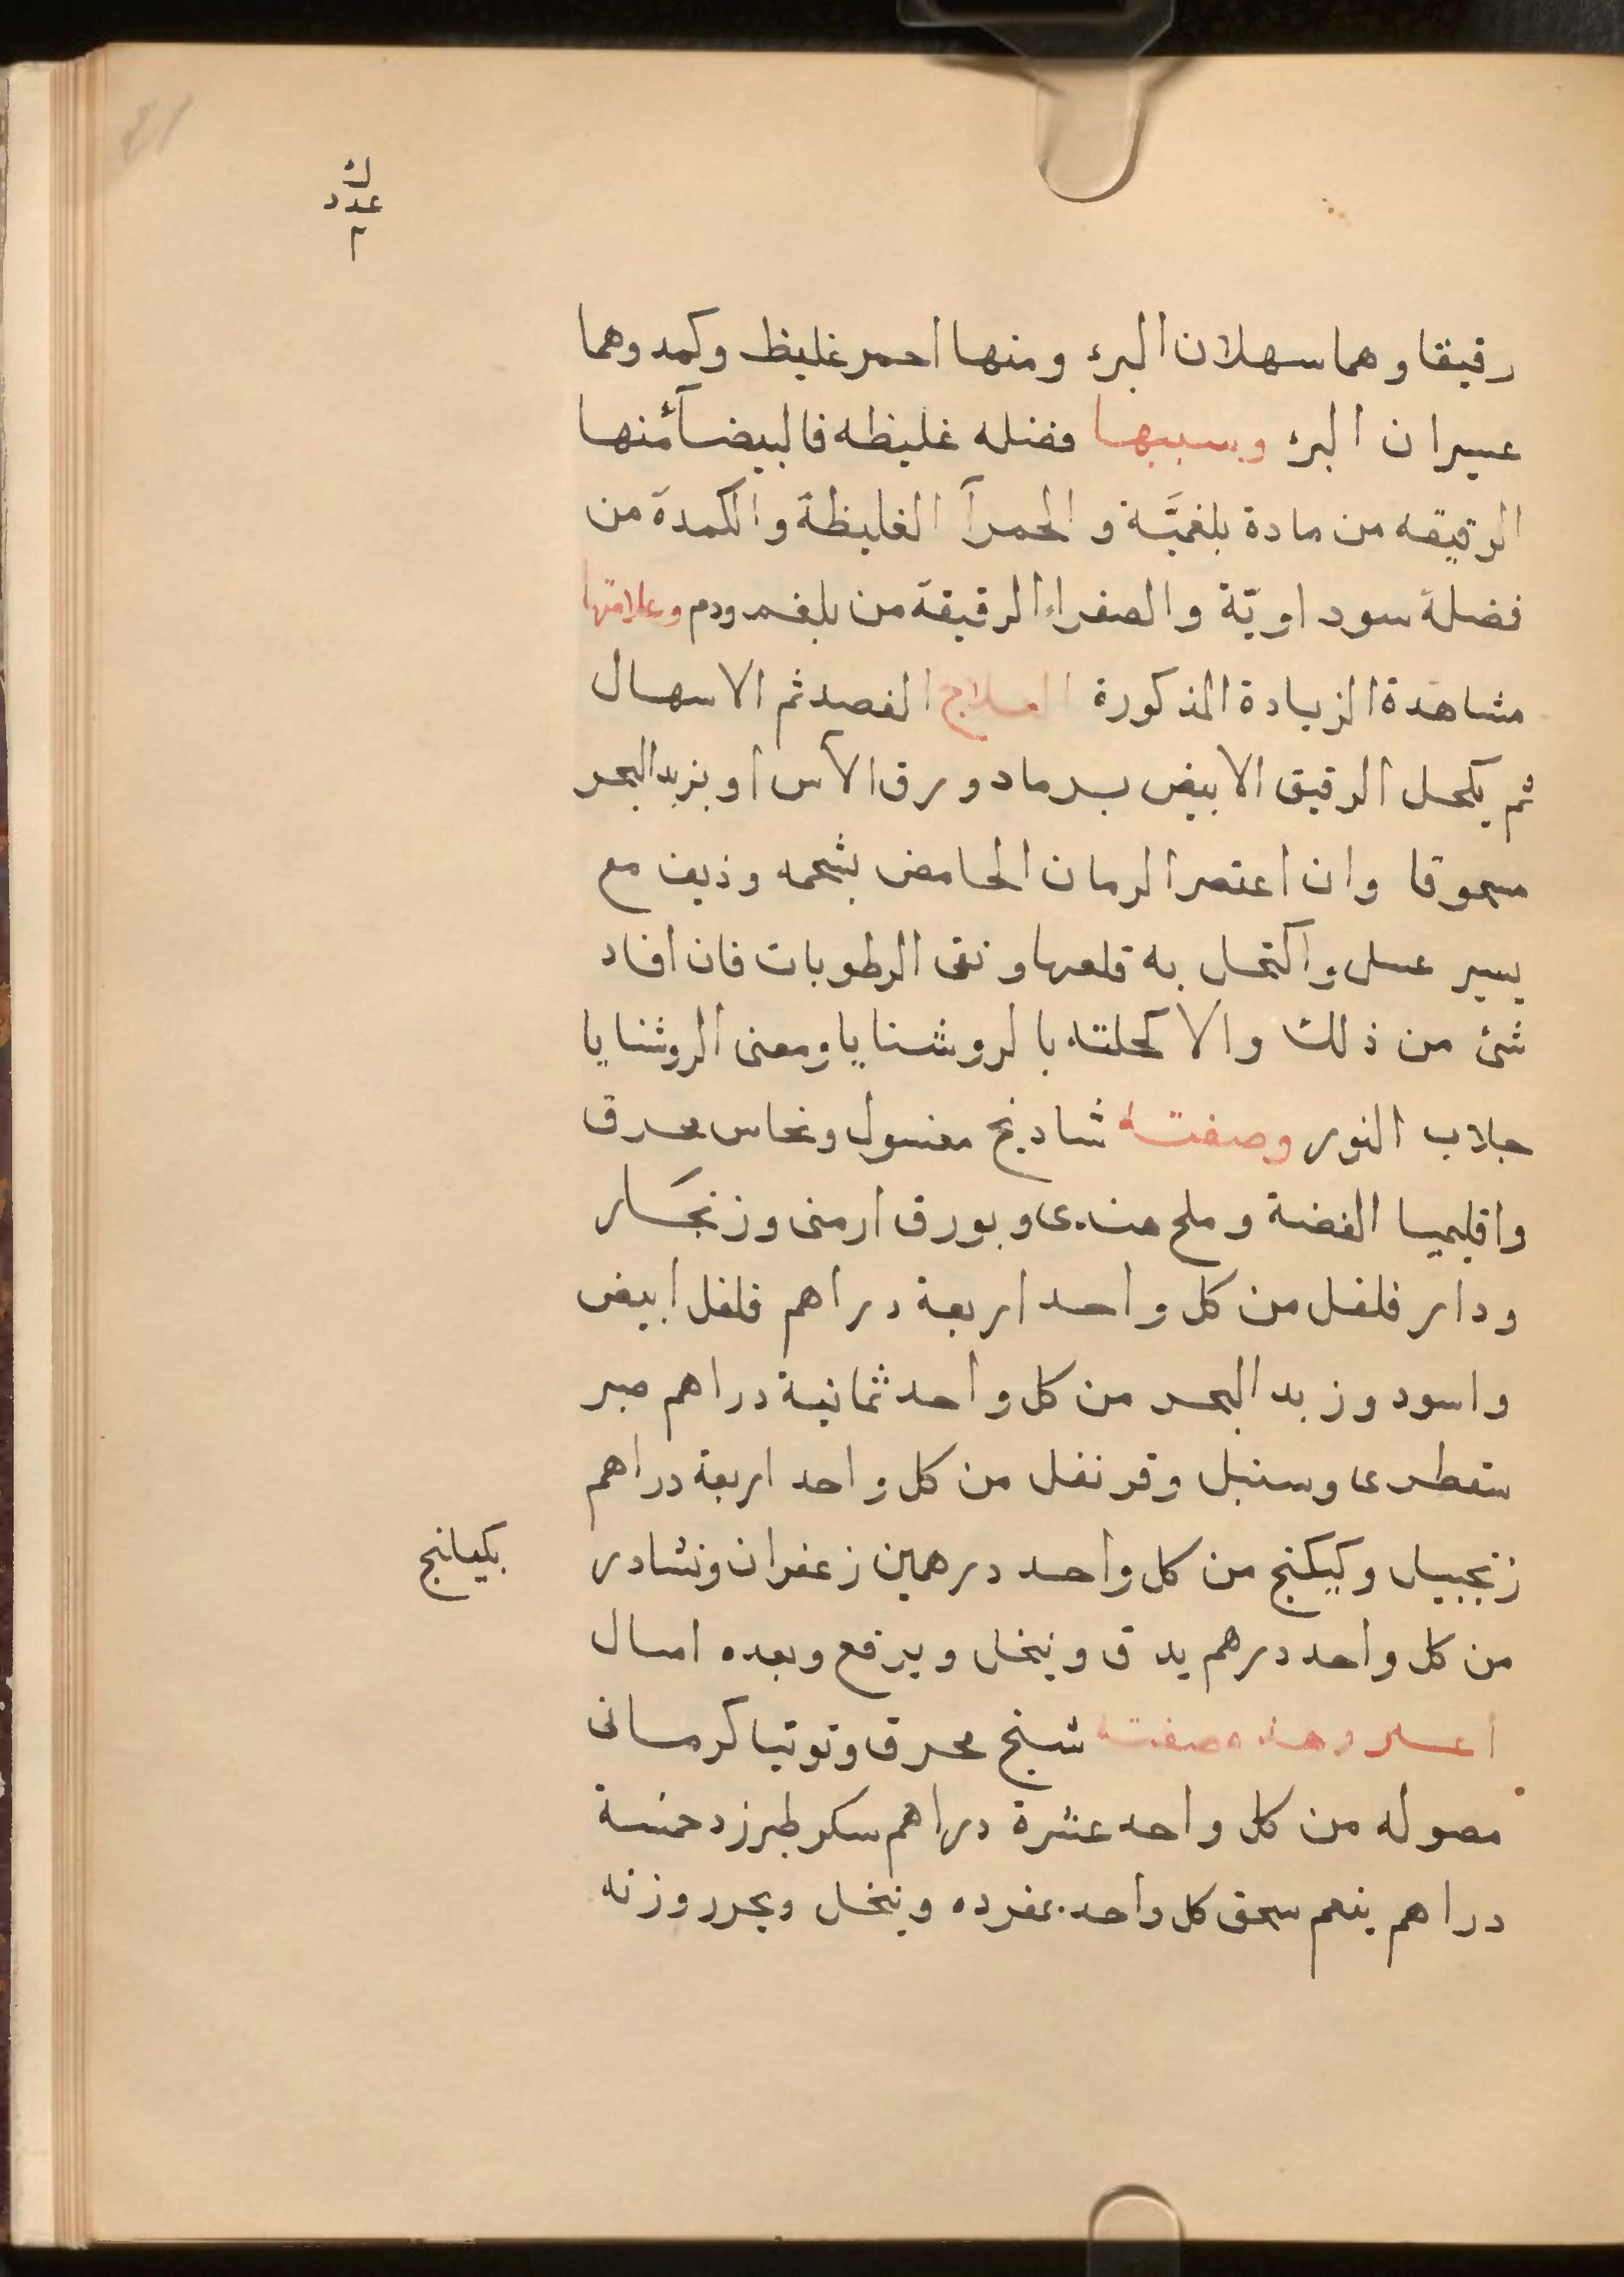 ك
عدد
٢
رقيقا وهما سهلان البرء ومنها احمر غليظ وكمد وهما
عسيران البرء وسببها فضله غليظه فالبيضآء منها
الرقيقه من مادة بلغميَّة و الحمرآ الغليظة والكمدة من
فضلة سوداويّة والصفراء الرقيقة من بلغم ودم وعلامتها
مشاهدة الزيادة المذكورة العلاج الفصد ثم الاسهال
ثم يكحل الرقيق الابيض برماد ورق الآس او بزبد البحر
مسحوقا وان اعتصر الرمان الحامض بشحمه وذيف مع
يسير عسل واكتحل به قلعها ونقى الرطوبات فان افاد
شئ من ذلك والا كحلته بالروشنايا ومعنى الروشنايا
جلاب النور وصفته شادنج مغسول ونحاس محرق
واقليميا الفضة وملح هندى وبورق ارمنى وزنجار
ودار فلفل من كل واحد اربعة دراهم فلفل ابيض
واسود وزبد البحر من كل واحد ثمانية دراهم صبر
سقطرى وسنبل وقرنفل من كل واحد اربعة دراهم
زنجبيل وكيكنج من كل واحد درهمين زعفران ونشادر
بكيانج
من كل واحد درهم يدق وينخل ويرفع وبعده امسال
وهذه صفته شنج محرق وتوتيا كرمانى
مصوله من كل واحد عشرة دراهم سكر طبرزد خمسة
دراهم ينعم سحق كل واحد بمفرده وينخل ويحرر وزنه